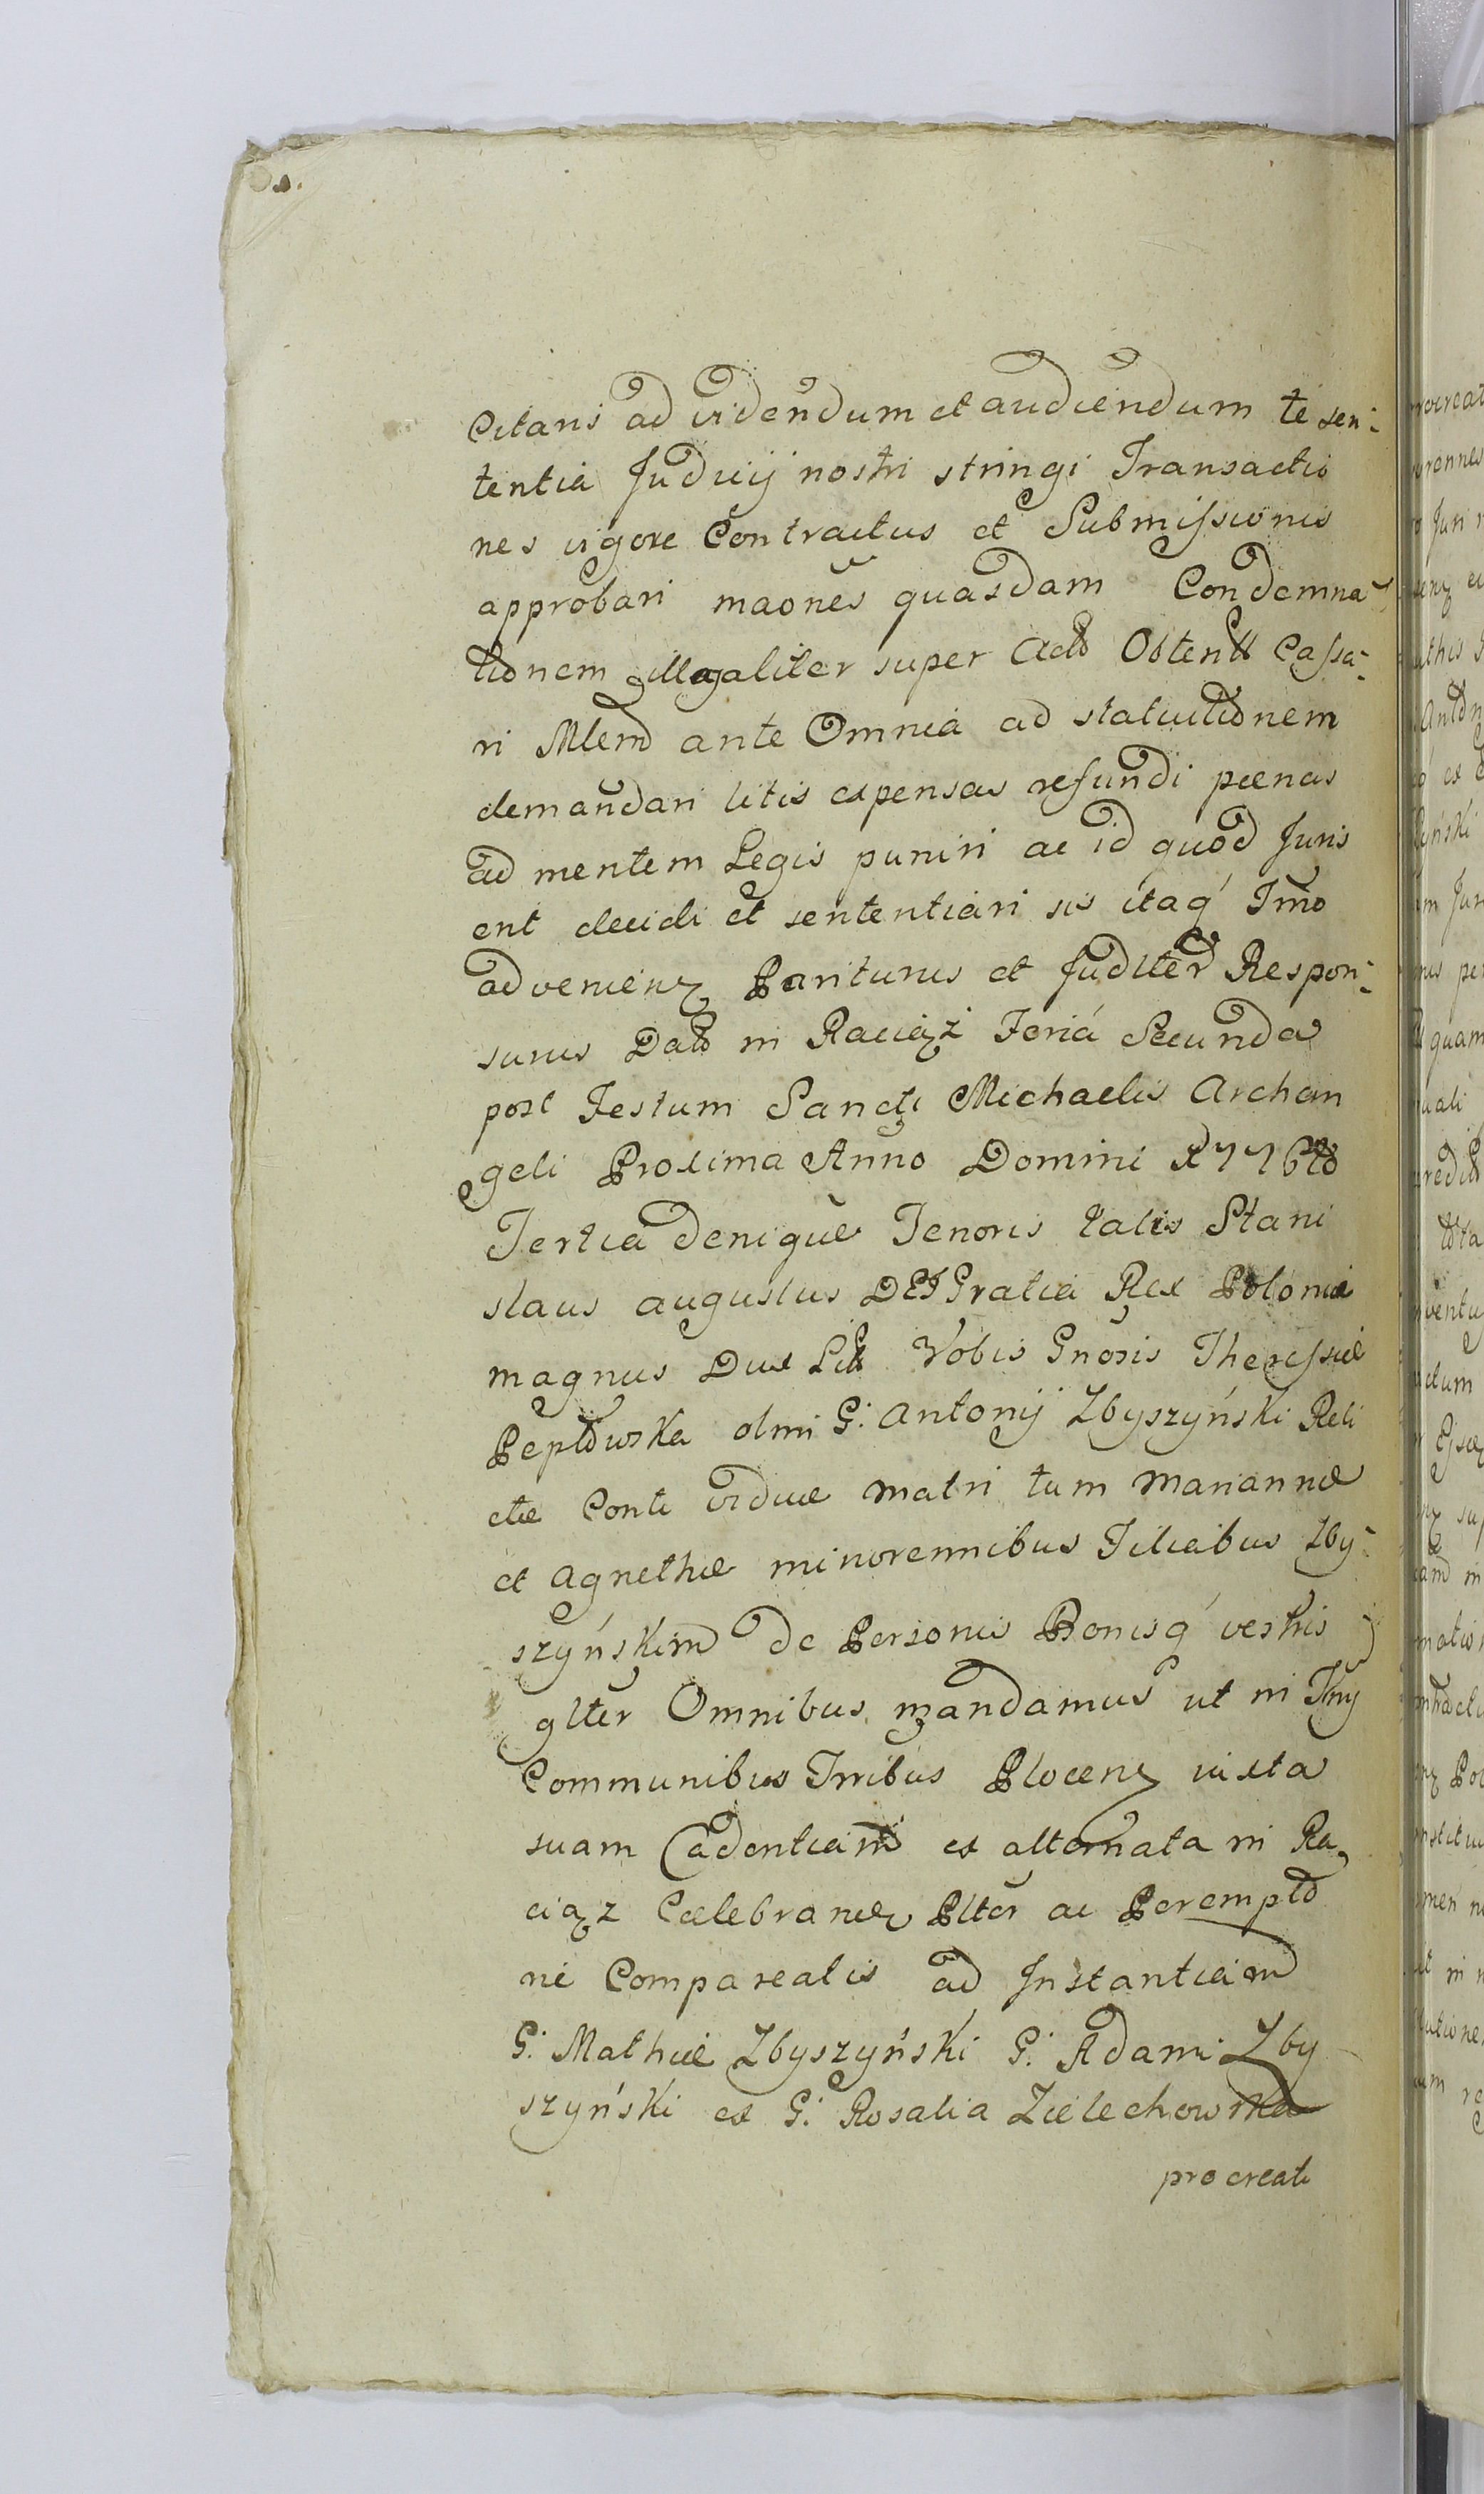 Citaris ad videndum et audiendum te sen-
tentia Judicij nostri stringi Transactio
nes vigore Contractus et Submissionis
approbari maones quasdam Condemna
tionem illegaliter super Acto Obtent Cassa-
ri Mlem ante Omnia ad statuitionem
demandari litis expensas refundi pœnas
ad mentem Legis puniri ac id quod Juris
ent decidi et sententiari sis itaq Tmo
adveniens Pariturus et Judlter Respon-
surus Dato in Raciąż Feriá Secunda
post Festum Sancti Michaelis Archan
geli Proxima Anno Domini 1776to
Tertia denique Tenoris talis Stani
slaus augustus DEI Gratia Rex Poloniæ
magnus Dux Litt Vobis Gnosis Theressiæ
Peptowska olmi G: Antonij Zbyszyński Reli
ctæ Conti viduæ matri tum Mariannæ
et Agnethæ minorennibus Filiabus Zby-
szyńskim de Personis Bonisq vestris
glter Omnibus mandamus ut in Tmj
Communibus Trribus Plocens iuxta
suam Cadentiam ex alternata in Ra
ciąz Cælebrandis Pltor ac Perempto
rie Compareatis ad Instantiam
G: Mathiæ Zbyszyński G: Adami Zby
szyński ex G: Rosalia Zielechowska
procreati
procreat
orennes
Juri
quam
uali
tota
ventu
ctum